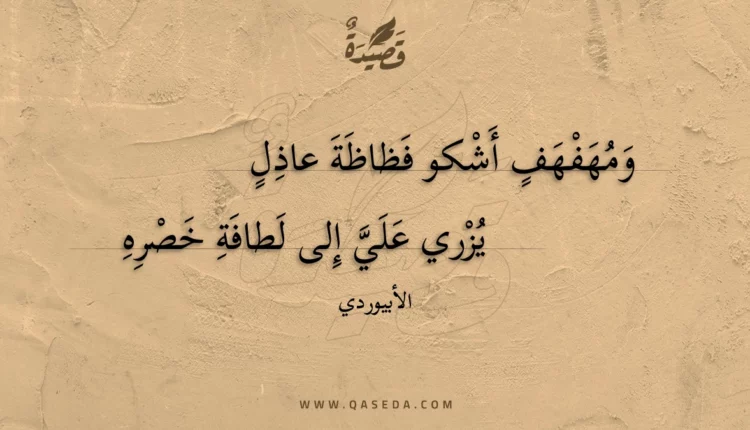 قَصِيدَةٌ
وَمُهَفْهَفٍ أَشْكو فَظاظَةَ عاذِلٍ
يُزْري عَلَيَّ إِلى لَطافَةِ خَصْرِهِ
الأبيوردي
WWW.QASEDA.COM